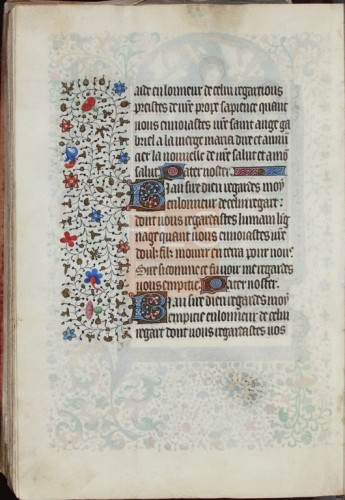 aide en lonneur de celui regart q̃ uous
preistes de vr̃e propr̃ sapience quant
vous enuoiastes vr̃e saint ange ga
briel a la vierge maria dire et annũ
cer la nouuelle de vr̃e salut et a no
salut Pater noster.
Biau sire dieu regardes moy
en lonneur de celui regart :
dont vous regardastes lumain lig
nage quant vous enuoiastes vr̃e
doulz filz mourir en terra pour nous
Sire si comme et si uoir me regardes
nous emp̃tie Pater noster.
Biau sire dieu regardes moy
em pitie en lonneur de celui
regart dont vous regardastes vos